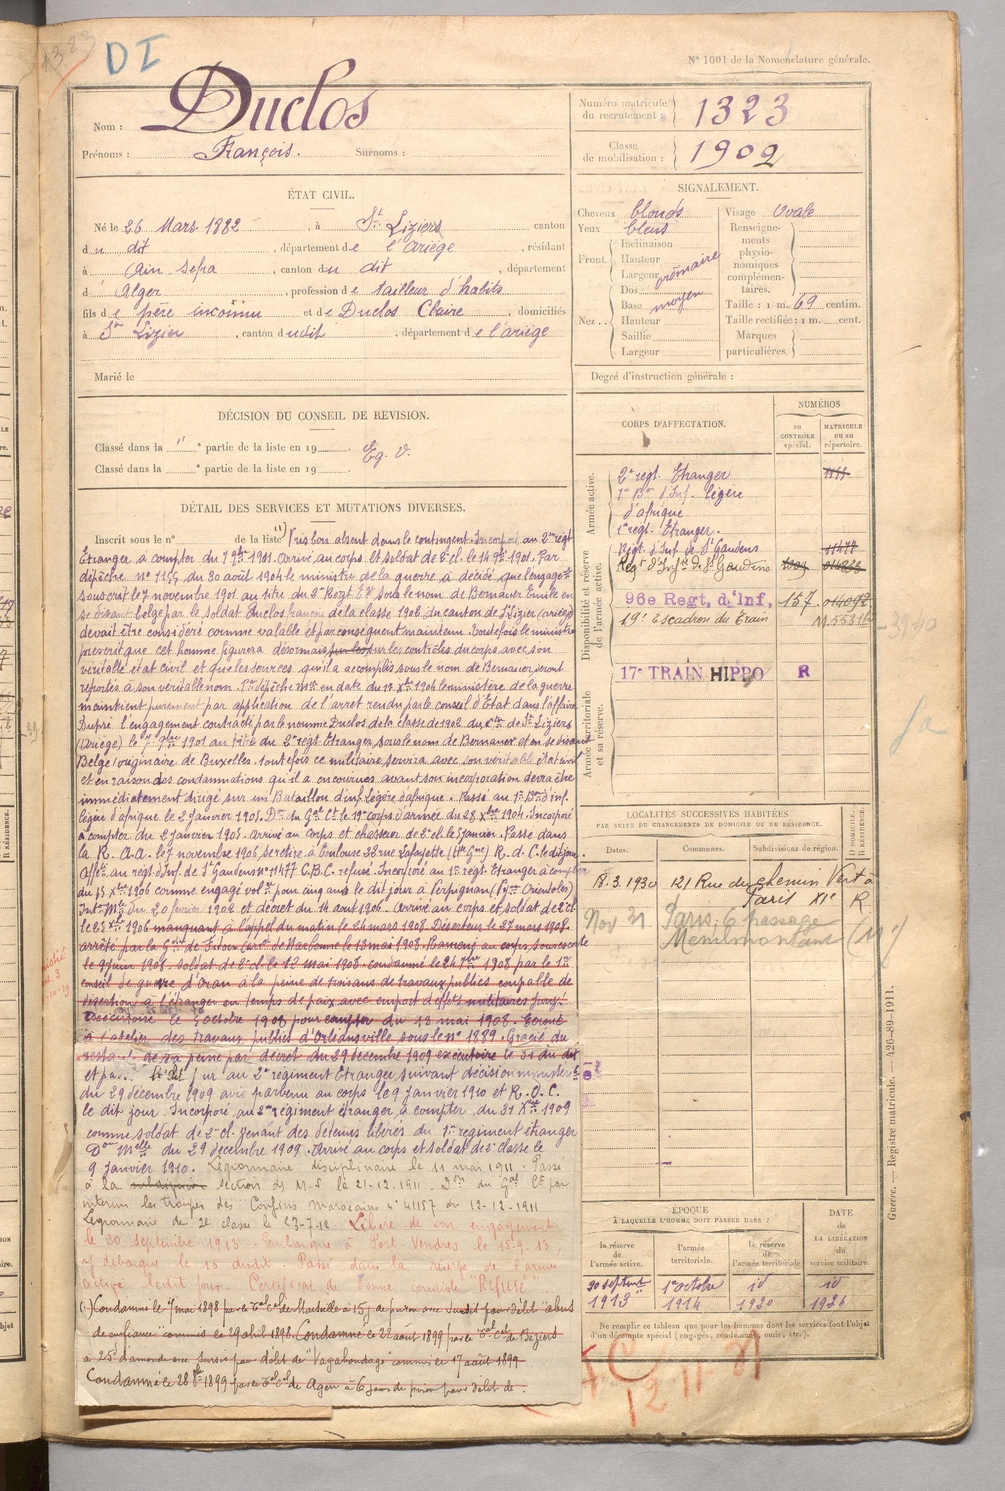 1323
DI
N° 1001 de la Nomenclature générale.
Nom : Duclos
Prénoms : François. Surnoms :
Numéro matricule du recrutement : 1323
Classe de mobilisation : 1902
ÉTAT CIVIL.
Né le 26 Mars 1882 à St Liziers canton
du dit, département de l'Ariège, résidant
à Ain Sefra, canton du dit, département
d' Alger, profession de tailleur d'habits
fils de père inconnu et de Duclos Claire, domiciliés
à St Lizier, canton dudit, département de l'ariège
Marié le
SIGNALEMENT.
Cheveux blonds
Yeux bleus
Front. Inclinaison
Hauteur
Largeur ordinaire
Nez.. Dos
Base moyen
Hauteur
Saillie
Largeur
Visage Ovale
Renseignements physionomiques complémentaires.
Taille : 1 m. 69 centim.
Taille rectifiée : 1 m. cent.
Marques particulières.
Degré d'instruction générale :
DÉCISION DU CONSEIL DE REVISION.
Classé dans la " e partie de la liste en 19 Eg. V.
Classé dans la e partie de la liste en 19
DÉTAIL DES SERVICES ET MUTATIONS DIVERSES.
Inscrit sous le n° de la liste (1) Vis bon absent dans le contingent. Incorporé au 2e régt
Etranger à compter du 7 9bre 1901. arrivé au corps et soldat de 2e cl. le 14 9bre 1901. Par
dépêche n° 1155 du 30 août 1904 le ministre de la guerre a décidé que l'engagt
souscrit le 7 novembre 1901 au titre du 2e Regt Er sous le nom de Bernauer Emile en
se disant belge par le soldat Duclos françois de la classe 1902 du canton de St Lizier (ariège)
devait être considéré comme valable et par conséquent maintenu. Toutefois le ministre
prescrit que cet homme figurera désormais sur les contrôles du corps avec son
véritable état civil et que les services qu'il a accomplis sous le nom de Bernauer seront
reportés à son véritable nom. Par dépêche Mlle en date du 17 Xbre 1904 le ministère de la guerre
maintient purement par application de l'arret rendu par le conseil d'Etat dans l'affaire
Dupré l'engagement contracté par le nommé Duclos de la classe de 1902 du con de St Liziers
(Ariège) le 7 9bre 1901 au titre du 2e régt Etranger sous le nom de Bernauer et en se disant
Belge originaire de Bruxelles. toutefois ce militaire servira avec son véritable état civil
et en raison des condamnations qu'il a encourues avant son incorporation devra être
immédiatement dirigé sur un Bataillon d'inf. Légère d'afrique. Passé au 1er Bon d'inf.
légère d'afrique le 2 Janvier 1905. Don du Gal Ct le 19e corps d'armée du 28 Xbre 1904. Incorporé
à compter du 2 janvier 1905. Arrivé au corps et chasseur de 2e cl. le 5 janvier. Passé dans
la R. A.A. le 7 novembre 1906 se retire à Toulouse 38 rue Lafayette (Hte Gne) R. d. C. le dit jour
Affté au régt d'Inf. de St Gaudens n° 11477 C.B.C. refusé. Incorporé au 1er régt. Etranger à compter
du 15 Xbre 1906 comme engagé volre pour cinq ans le dit jour à Perpignan (Pyr. Orientales)
Intce Mre du 20 février 1902 et décret du 14 août 1906. Arrivé au corps et soldat de 2e cl
le 23 Xbre 1906 manquant à l'appel du matin le 26 mars 1908. Déserteur le 27 mars 1908.
arrêté par la Gie de Fitou con de Narbonne le 13 mai 1908. Ramené au corps sous escorte
le 9 juin 1908. soldat de 2e cl. le 12 mai 1908. condamné le 24 7bre 1908 par le 1er
conseil de guerre d'Oran à la peine de trois ans de travaux publics coupable de
désertion à l'étranger en temps de paix avec emport d'effets militaires Jugt
exécutoire le 5 octobre 1908 pour compter du 13 mai 1908. Ecroué
à l'atelier des travaux publics d'Orléansville sous le n° 1889. Gracié du
restant de sa peine par décret du 29 décembre 1909 exécutoire le 31 du dit
et passé le dit jour au 2e régiment Etranger suivant décision ministérielle
du 29 décembre 1909 avis parvenu au corps le 9 janvier 1910 et R. D. C.
le dit jour. Incorporé au 2me régiment étranger à compter du 31 Xbre 1909
comme soldat de 2e cl. venant des détenus libérés du 1er régiment étranger
Don Melle du 29 décembre 1909. Arrivé au corps et soldat de 2e classe le
9 Janvier 1910. Légionnaire disciplinaire le 11 mai 1911. Passé
à la section de M.S. le 21-12-1911. Don du Gal Ct par
interim les troupes des Confins Marocains n° 41157 du 12-12-1911
Légionnaire de 2e classe le 23-7-12. Libéré de son engagement
le 20 septembre 1913. Embarqué à Port-Vendres le 15-9-13,
débarqué le 10 dudit. Passé dans la réserve de l'armée
active ledit jour. Certificat de bonne conduite "Refusé"
(1) Condamné le 7 mai 1898 par le Tal Cel de Marseille à 15 j de prison avec sursis pour délit "abus
de confiance" commis le 29 avril 1898. Condamné le 22 août 1899 par le Tal Cel de Béziers
à 25f d'amende avec sursis pour délit de "Vagabondage" commis le 17 août 1899
Condamné le 28 8bre 1899 par le Tal Cel de Agen à 6 jours de prison pour délit de :
CORPS D'AFFECTATION.
NUMÉROS
DU CONTRÔLE spécial.
MATRICULE ou au répertoire.
Armée active.
2e regt. Etranger 1111
1er Bon d'Inf. légère
d'afrique
1er regt. Etranger.
Disponibilité et réserve de l'armée active.
Regt d'Inf. de St Gaudens 11477
Regt d'Infie de St Gaudens
96e Regt, d'Inf, 157 014092
19e Escadron du Train
Armée territoriale et sa réserve.
17e TRAIN HIPPO R
LOCALITÉS SUCCESSIVES HABITÉES
PAR SUITE DE CHANGEMENTS DE DOMICILE OU DE RÉSIDENCE.
Dates. Communes. Subdivisions de région. D DOMICILE. R RÉSIDENCE.
18.3.1930 121 Rue du chemin Vert à
Paris XIe R
Nov 31 Paris, 6 passage
Menilmontant (11e)
ÉPOQUE
À LAQUELLE L'HOMME DOIT PASSER DANS :
DATE de LA LIBÉRATION du service militaire.
la réserve de l'armée active. l'armée territoriale. la réserve de l'armée territoriale
20 septembre 1913 1er octobre 1914 id 1920 id 1926
Ne remplir ce tableau que pour les hommes dont les services font l'objet
d'un décompte spécial (engagés, condamnés, omis, etc.).
12 11 31
Guerre. — Registre matricule. — 426-89-1911.